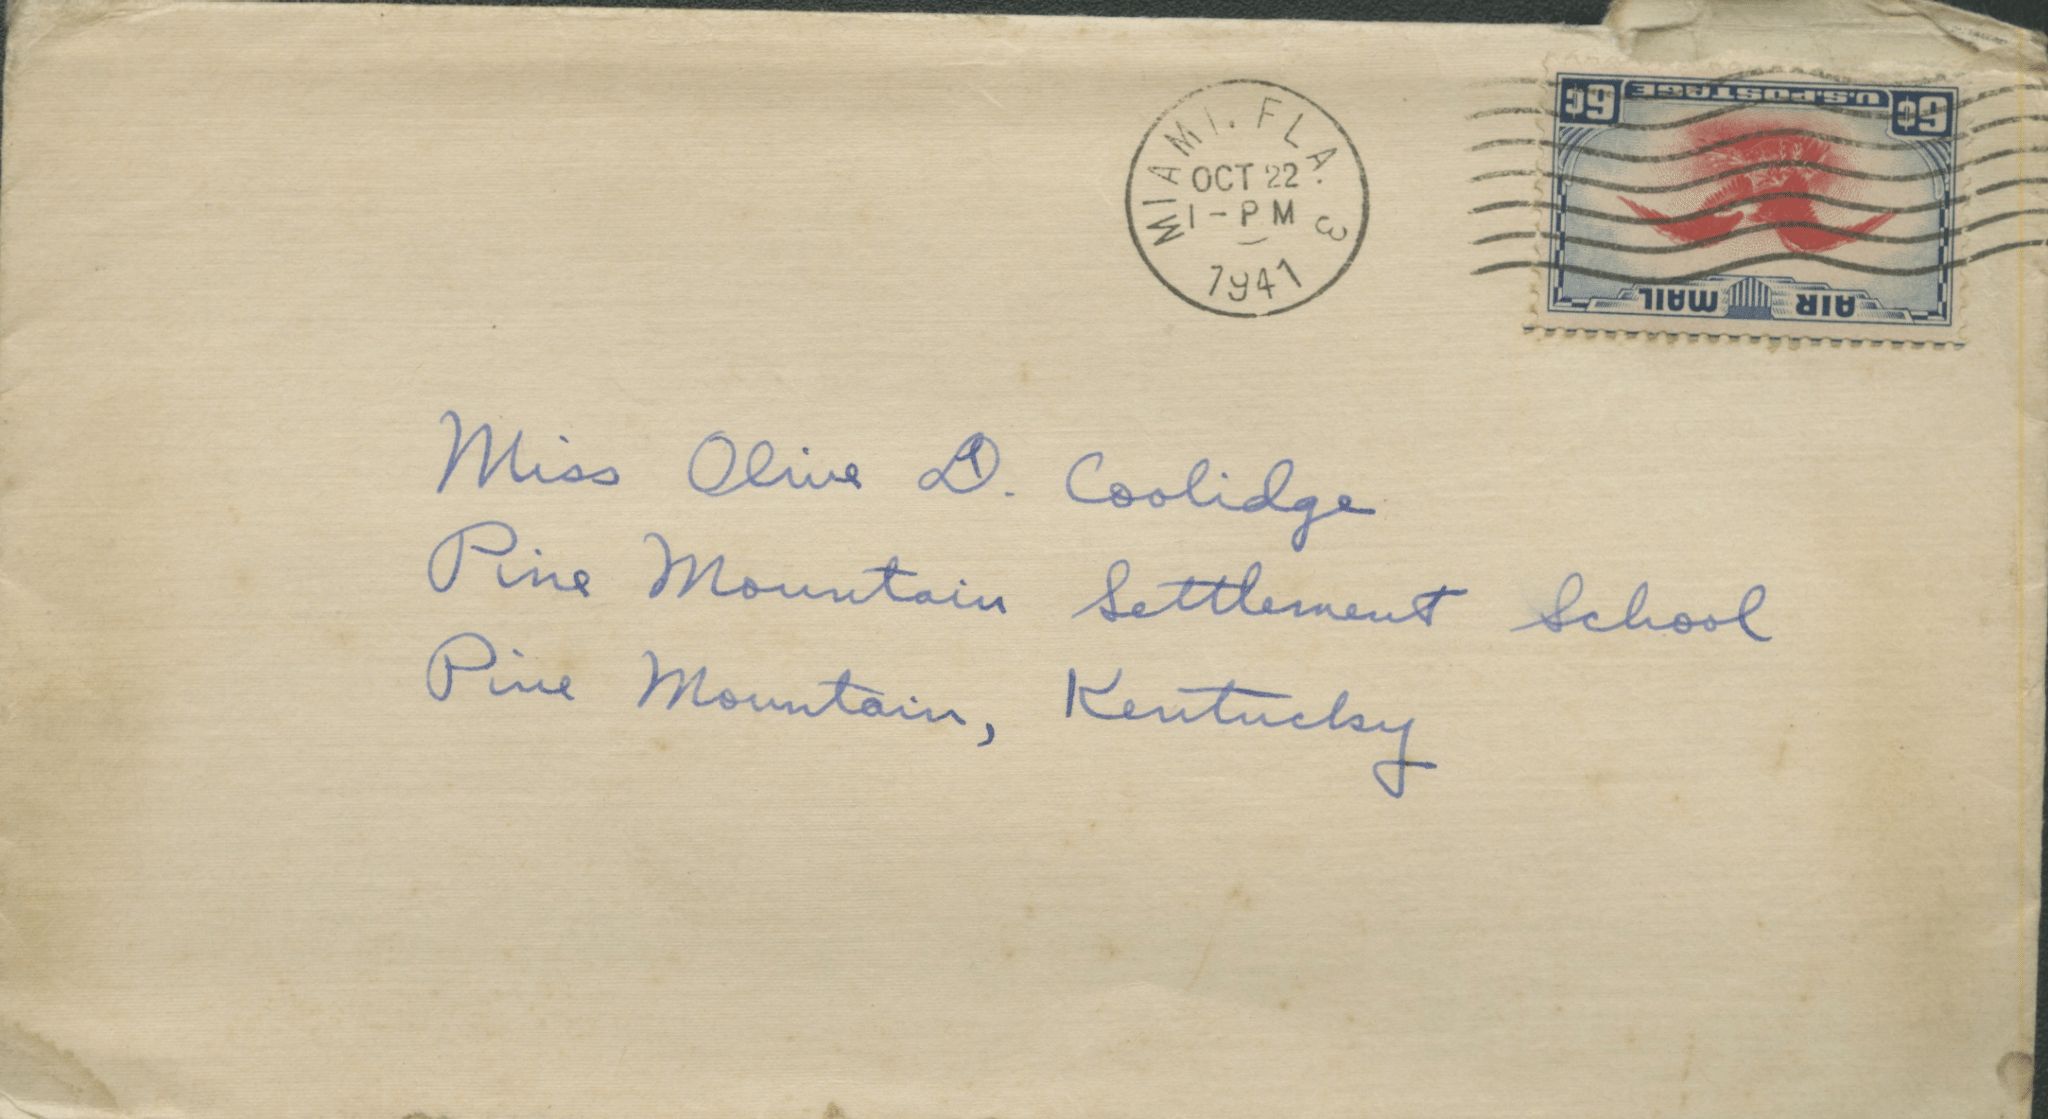 MIAMI. FLA. 3
OCT 22
1 - PM
1941
U.S. POSTAGE
6¢ 6¢
AIR MAIL
Miss Olive D. Coolidge
Pine Mountain Settlement School
Pine Mountain, Kentucky